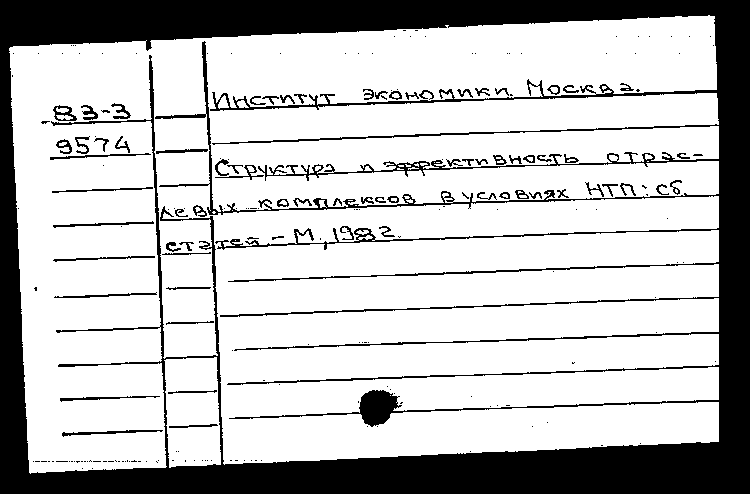 83-3
9574
Институт экономики. Москва.
Структура и эффективность отрас-
левых комплексов в условиях НТП: сб.
статей - М, 1982.